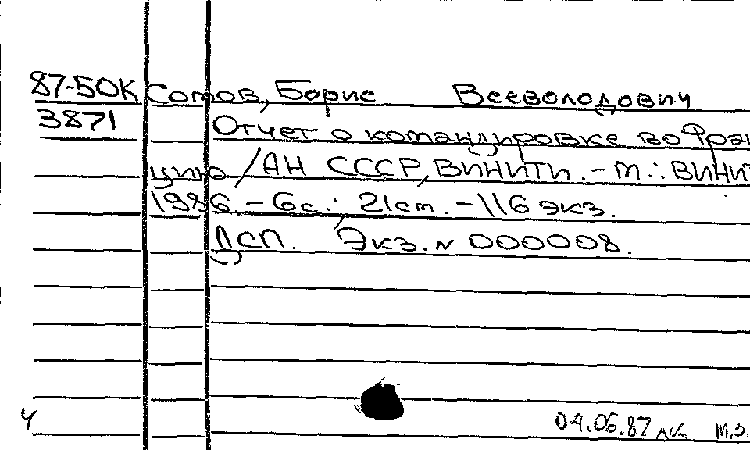 87-50К Сотов, Борис Всеволодович
3871 Отчет о командировке во Фран
цию / АН СССР, ВИНИТИ. - М.: ВИНИТ
1986. - 6 с.: 21 см. - 116 экз.
ДСП. Экз. N 000008.
04.06.87